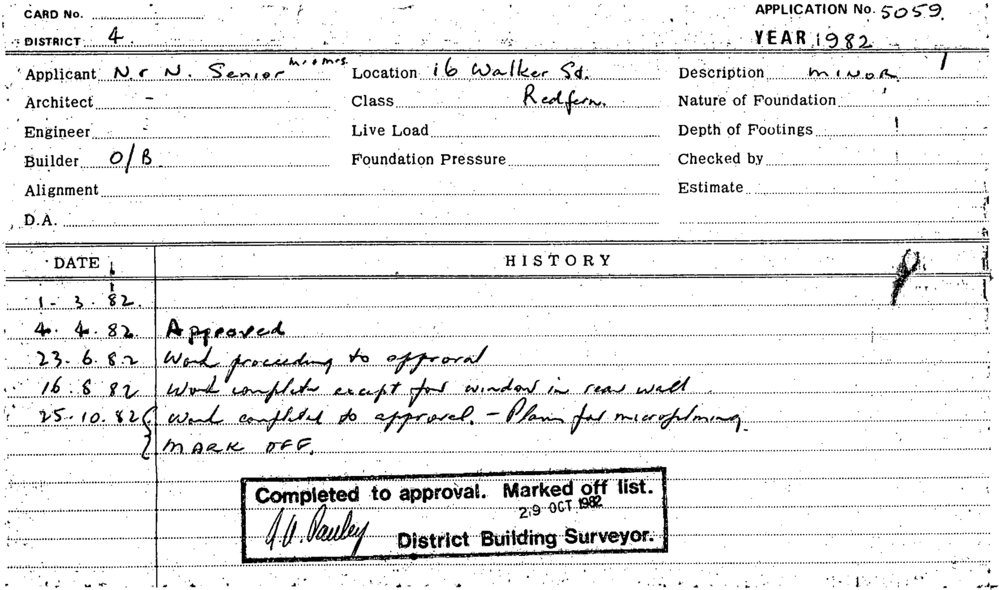 CARD No.
APPLICATION No. 5059.
DISTRICT 4.
YEAR 1982
Applicant N & N. Senior Mr & Mrs. Location 16 Walker St. Description MINOR
Architect - Class Redfern. Nature of Foundation
Engineer - Live Load Depth of Footings
Builder O/B Foundation Pressure Checked by
Alignment Estimate
D.A.
DATE HISTORY
1-3.82.
4.4.82 Approved
23.6.82 Work proceeding to approval
16.8.82 Work complete except for window in rear wall
25.10.82 Work completed to approval. - Plans for microfilming.
MARK OFF.
Completed to approval. Marked off list.
29 OCT 1982
District Building Surveyor.